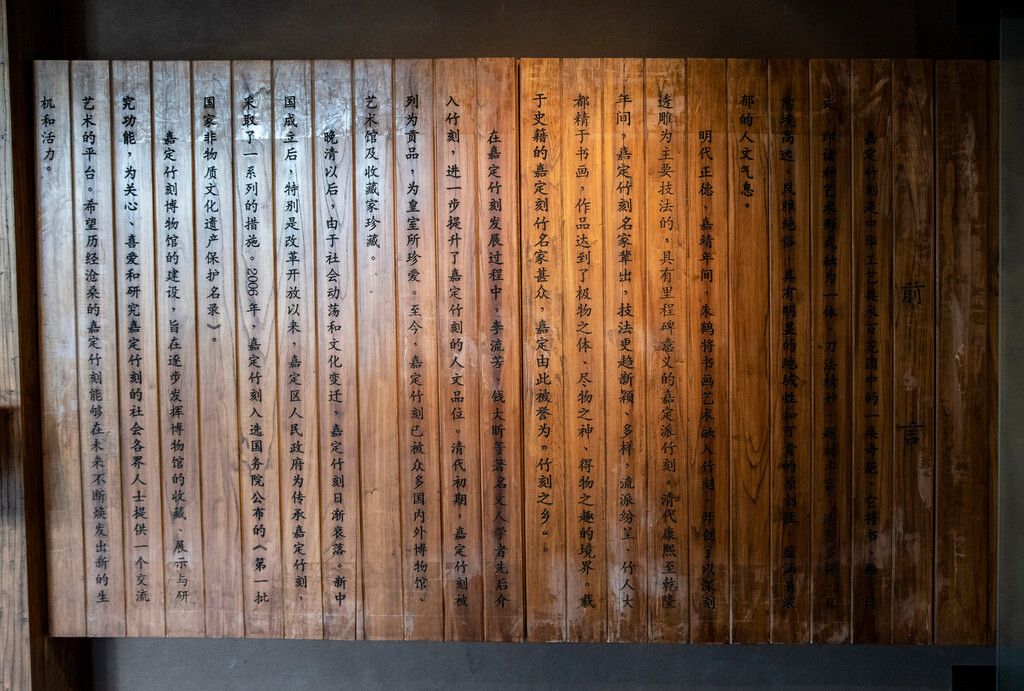 前言
嘉定竹刻是中华工艺美术百花园中的一朵奇葩，它将书、画、诗、
文、印诸种艺术形式融为一体，刀法精妙，题材丰富，多样，且
意境高远、风雅绝俗，具有明显的地域性和可贵的原创性，蕴涵着浓
郁的人文气息。
明代正德、嘉靖年间，朱鹤将书画艺术融入竹刻，开创了以深刻
透雕为主要技法的，具有里程碑意义的嘉定派竹刻。清代康熙至乾隆
年间，嘉定竹刻名家辈出，技法更趋新颖、多样，流派纷呈，竹人大
都精于书画，作品达到了极物之体、尽物之神、得物之趣的境界。载
于史籍的嘉定刻竹名家甚众，嘉定由此被誉为“竹刻之乡”。
在嘉定竹刻发展过程中，李流芳、钱大昕等著名文人学者先后介
入竹刻，进一步提升了嘉定竹刻的人文品位。清代初期，嘉定竹刻被
列为贡品，为皇室所珍爱。至今，嘉定竹刻已被众多国内外博物馆、
艺术馆及收藏家珍藏。
晚清以后，由于社会动荡和文化变迁，嘉定竹刻日渐衰落。新中
国成立后，特别是改革开放以来，嘉定区人民政府为传承嘉定竹刻，
采取了一系列的措施。2006年，嘉定竹刻入选国务院公布的《第一批
国家非物质文化遗产保护名录》。
嘉定竹刻博物馆的建设，旨在逐步发挥博物馆的收藏、展示与研
究功能，为关心、喜爱和研究嘉定竹刻的社会各界人士提供一个交流
艺术的平台。希望历经沧桑的嘉定竹刻能够在未来不断焕发出新的生
机和活力。